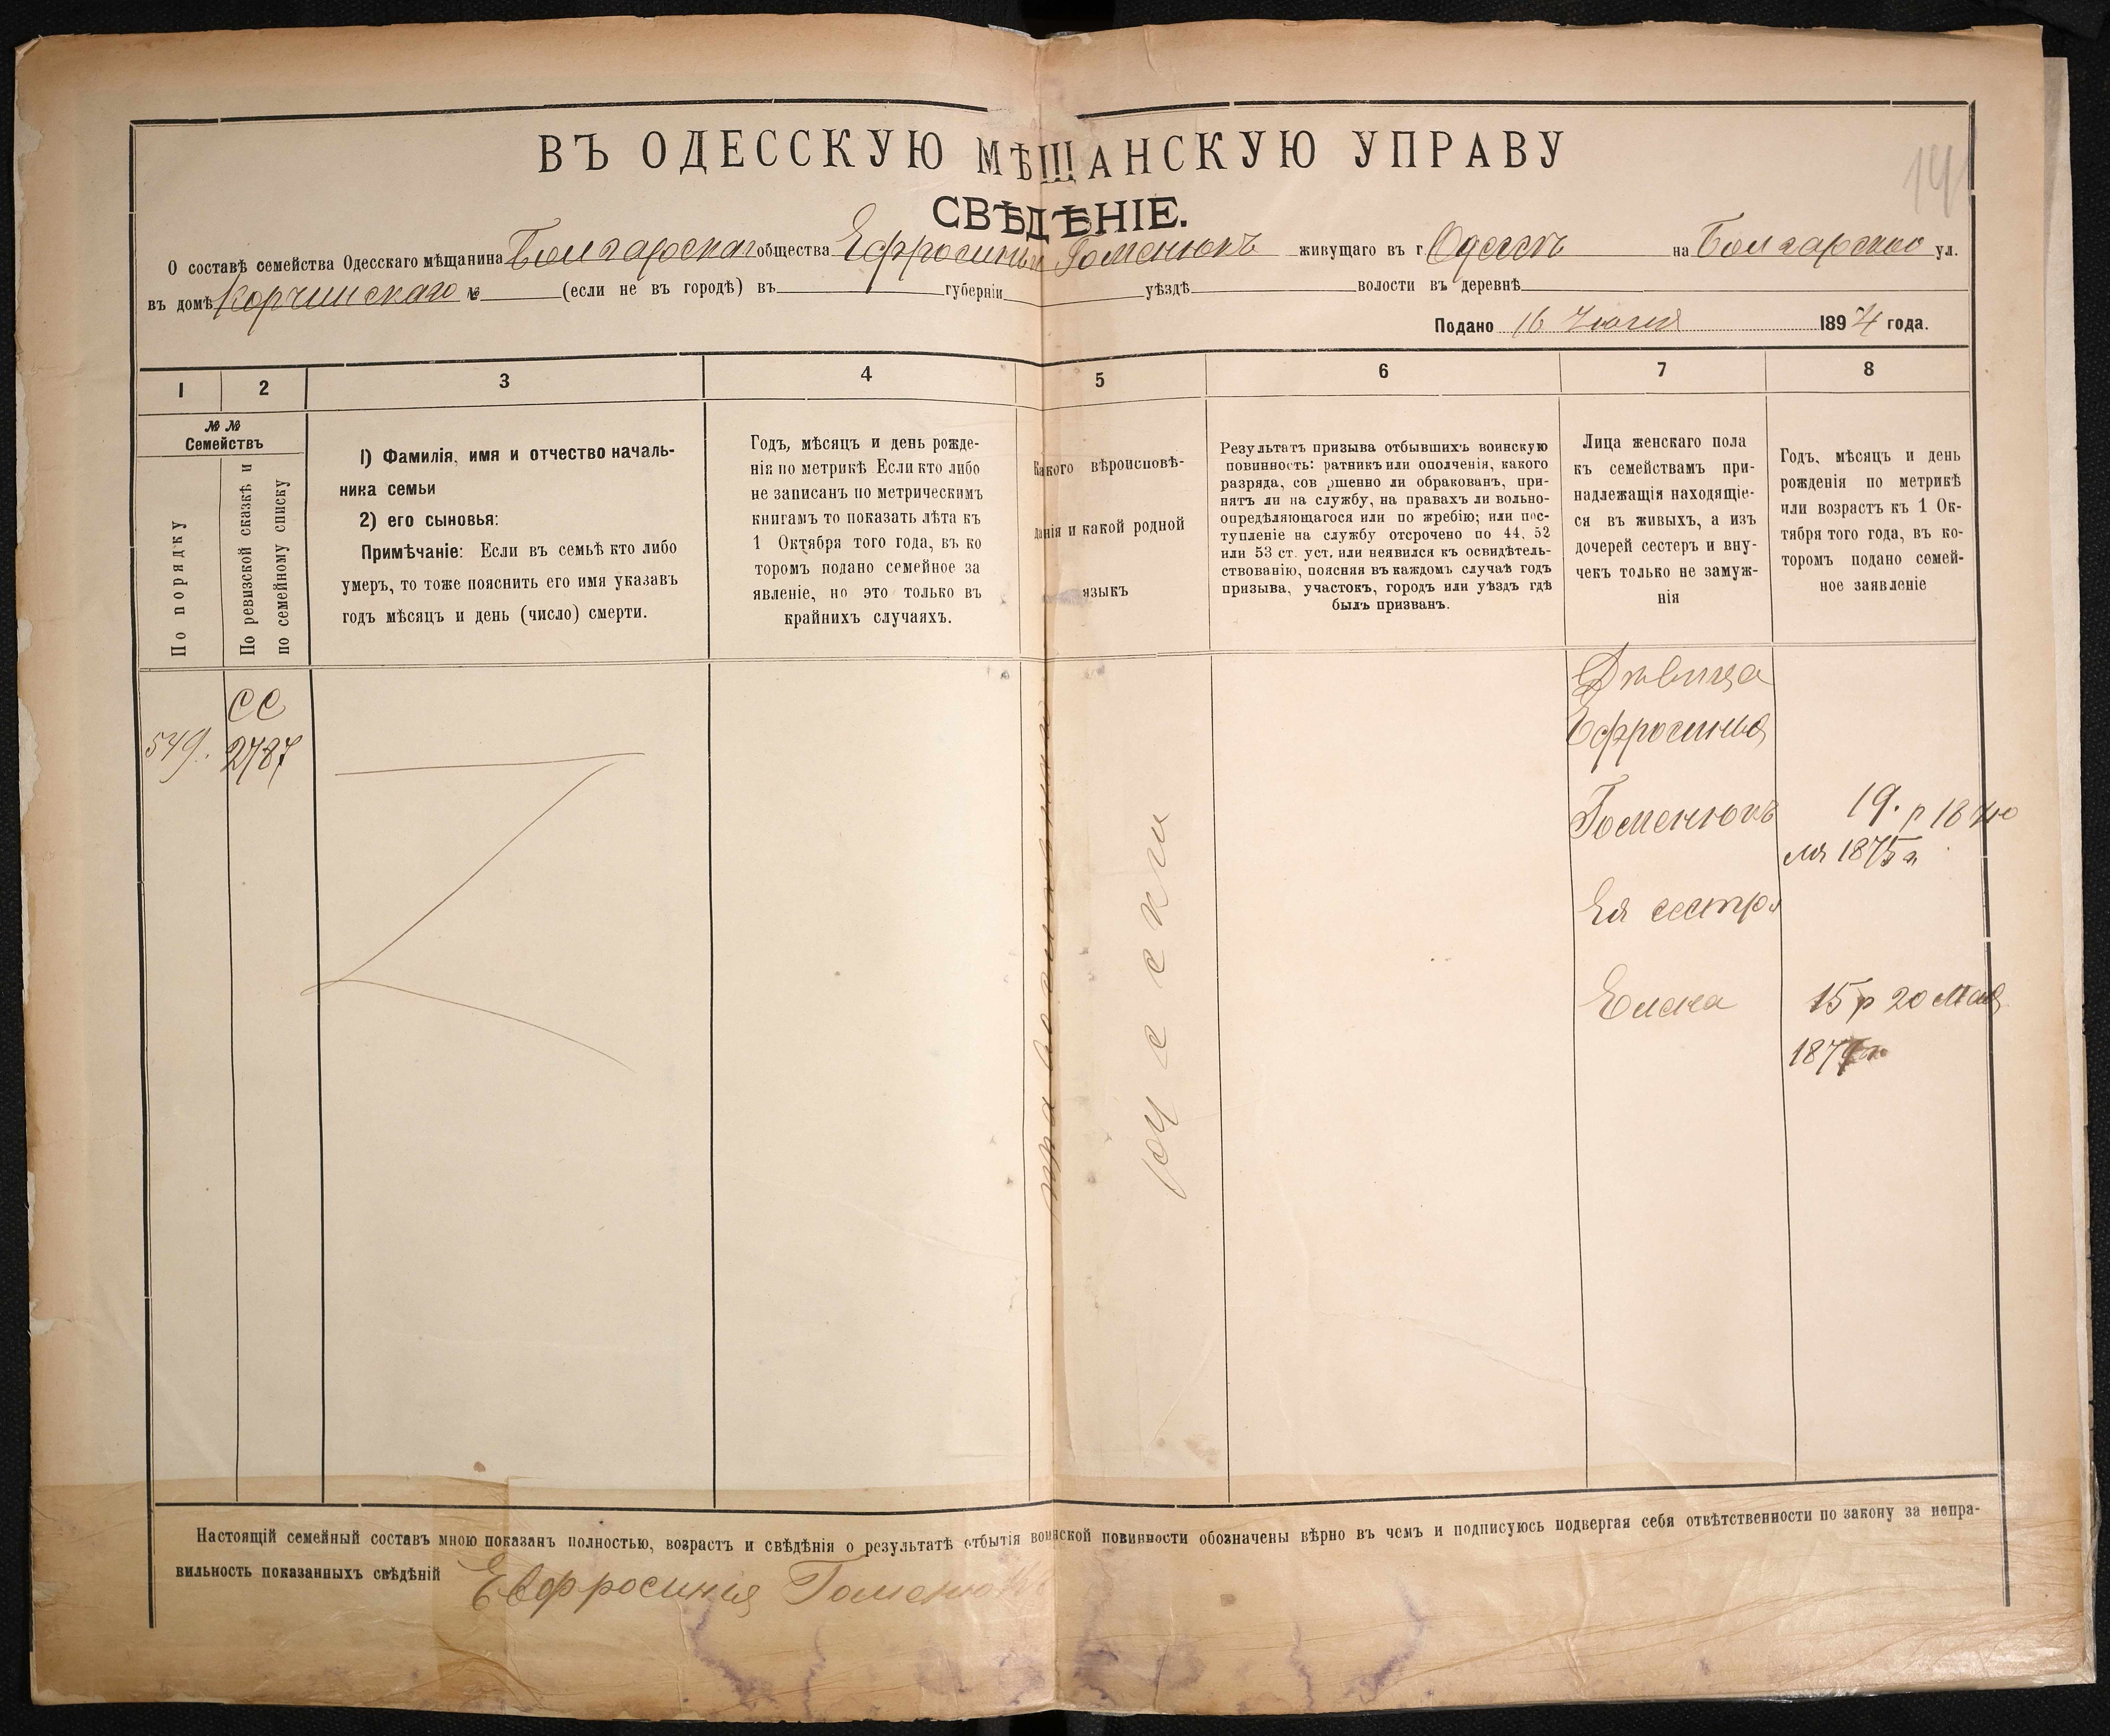 14
ВЪ ОДЕССКУЮ МѢЩАНСКУЮ УПРАВУ
СВѢДѢНІЕ.
О составѣ семейства Одесскаго мѣщанина Болгарскаго общества Ефросиньи Гоменюкъ живущаго въ г. Одессѣ на Болгарской ул.
въ домѣ Корчинскаго № (если не въ городѣ) въ губерніи уѣздѣ волости въ деревнѣ
Подано 16 1894 года.
1 2 3 4 5 6 7 8
№ №
Семействъ
По порядку
По ревизской сказкѣ и
по семейному списку
1) Фамилія, имя и отчество началь-
ника семьи
2) его сыновья:
Примѣчаніе: Если въ семьѣ кто либо
умеръ, то тоже пояснить его имя указавъ
годъ мѣсяцъ и день (число) смерти.
Годъ, мѣсяцъ и день рожде-
нія по метрикѣ Если кто либо
не записанъ по метрическимъ
книгамъ то показать лѣта къ
1 Октября того года, въ ко
торомъ подано семейное за
явленіе, но это только въ
крайнихъ случаяхъ.
Какого вѣроисповѣ-
данія и какой родной
языкъ
Результатъ призыва отбывшихъ воинскую
повинность: ратникъ или ополченія, какого
разряда, сов ршенно ли обракованъ, при-
нятъ ли на службу, на правахъ ли вольно-
опредѣляющагося или по жребію; или пос-
тупленіе на службу отсрочено по 44, 52
или 53 ст. уст. или неявился къ освидѣтель-
ствованію, поясняя въ каждомъ случаѣ годъ
призыва, участокъ, городъ или уѣздъ гдѣ
былъ призванъ.
Лица женскаго пола
къ семействамъ при-
надлежащія находящіе-
ся въ живыхъ, а изъ
дочерей сестеръ и вну-
чекъ только не замуж-
нія
Годъ, мѣсяцъ и день
рожденія по метрикѣ
или возрастъ къ 1 Ок-
тября того года, въ ко-
торомъ подано семей-
ное заявленіе
СС
549. 2787
православнаго
русскій
Дѣвица
Ефросинья
Гоменюкъ 19. р 18 Ію
ля 1875 г
Ея сестра
Елена 15 р 20 Мая
Настоящій семейный составъ мною показанъ полностью, возрастъ и свѣдѣнія о результатѣ отбытія воинской повинности обозначены вѣрно въ чемъ и подписуюсь подвергая себя отвѣтственности по закону за непра-
вильность показанныхъ свѣдѣній Евфросинія Гоменюкъ